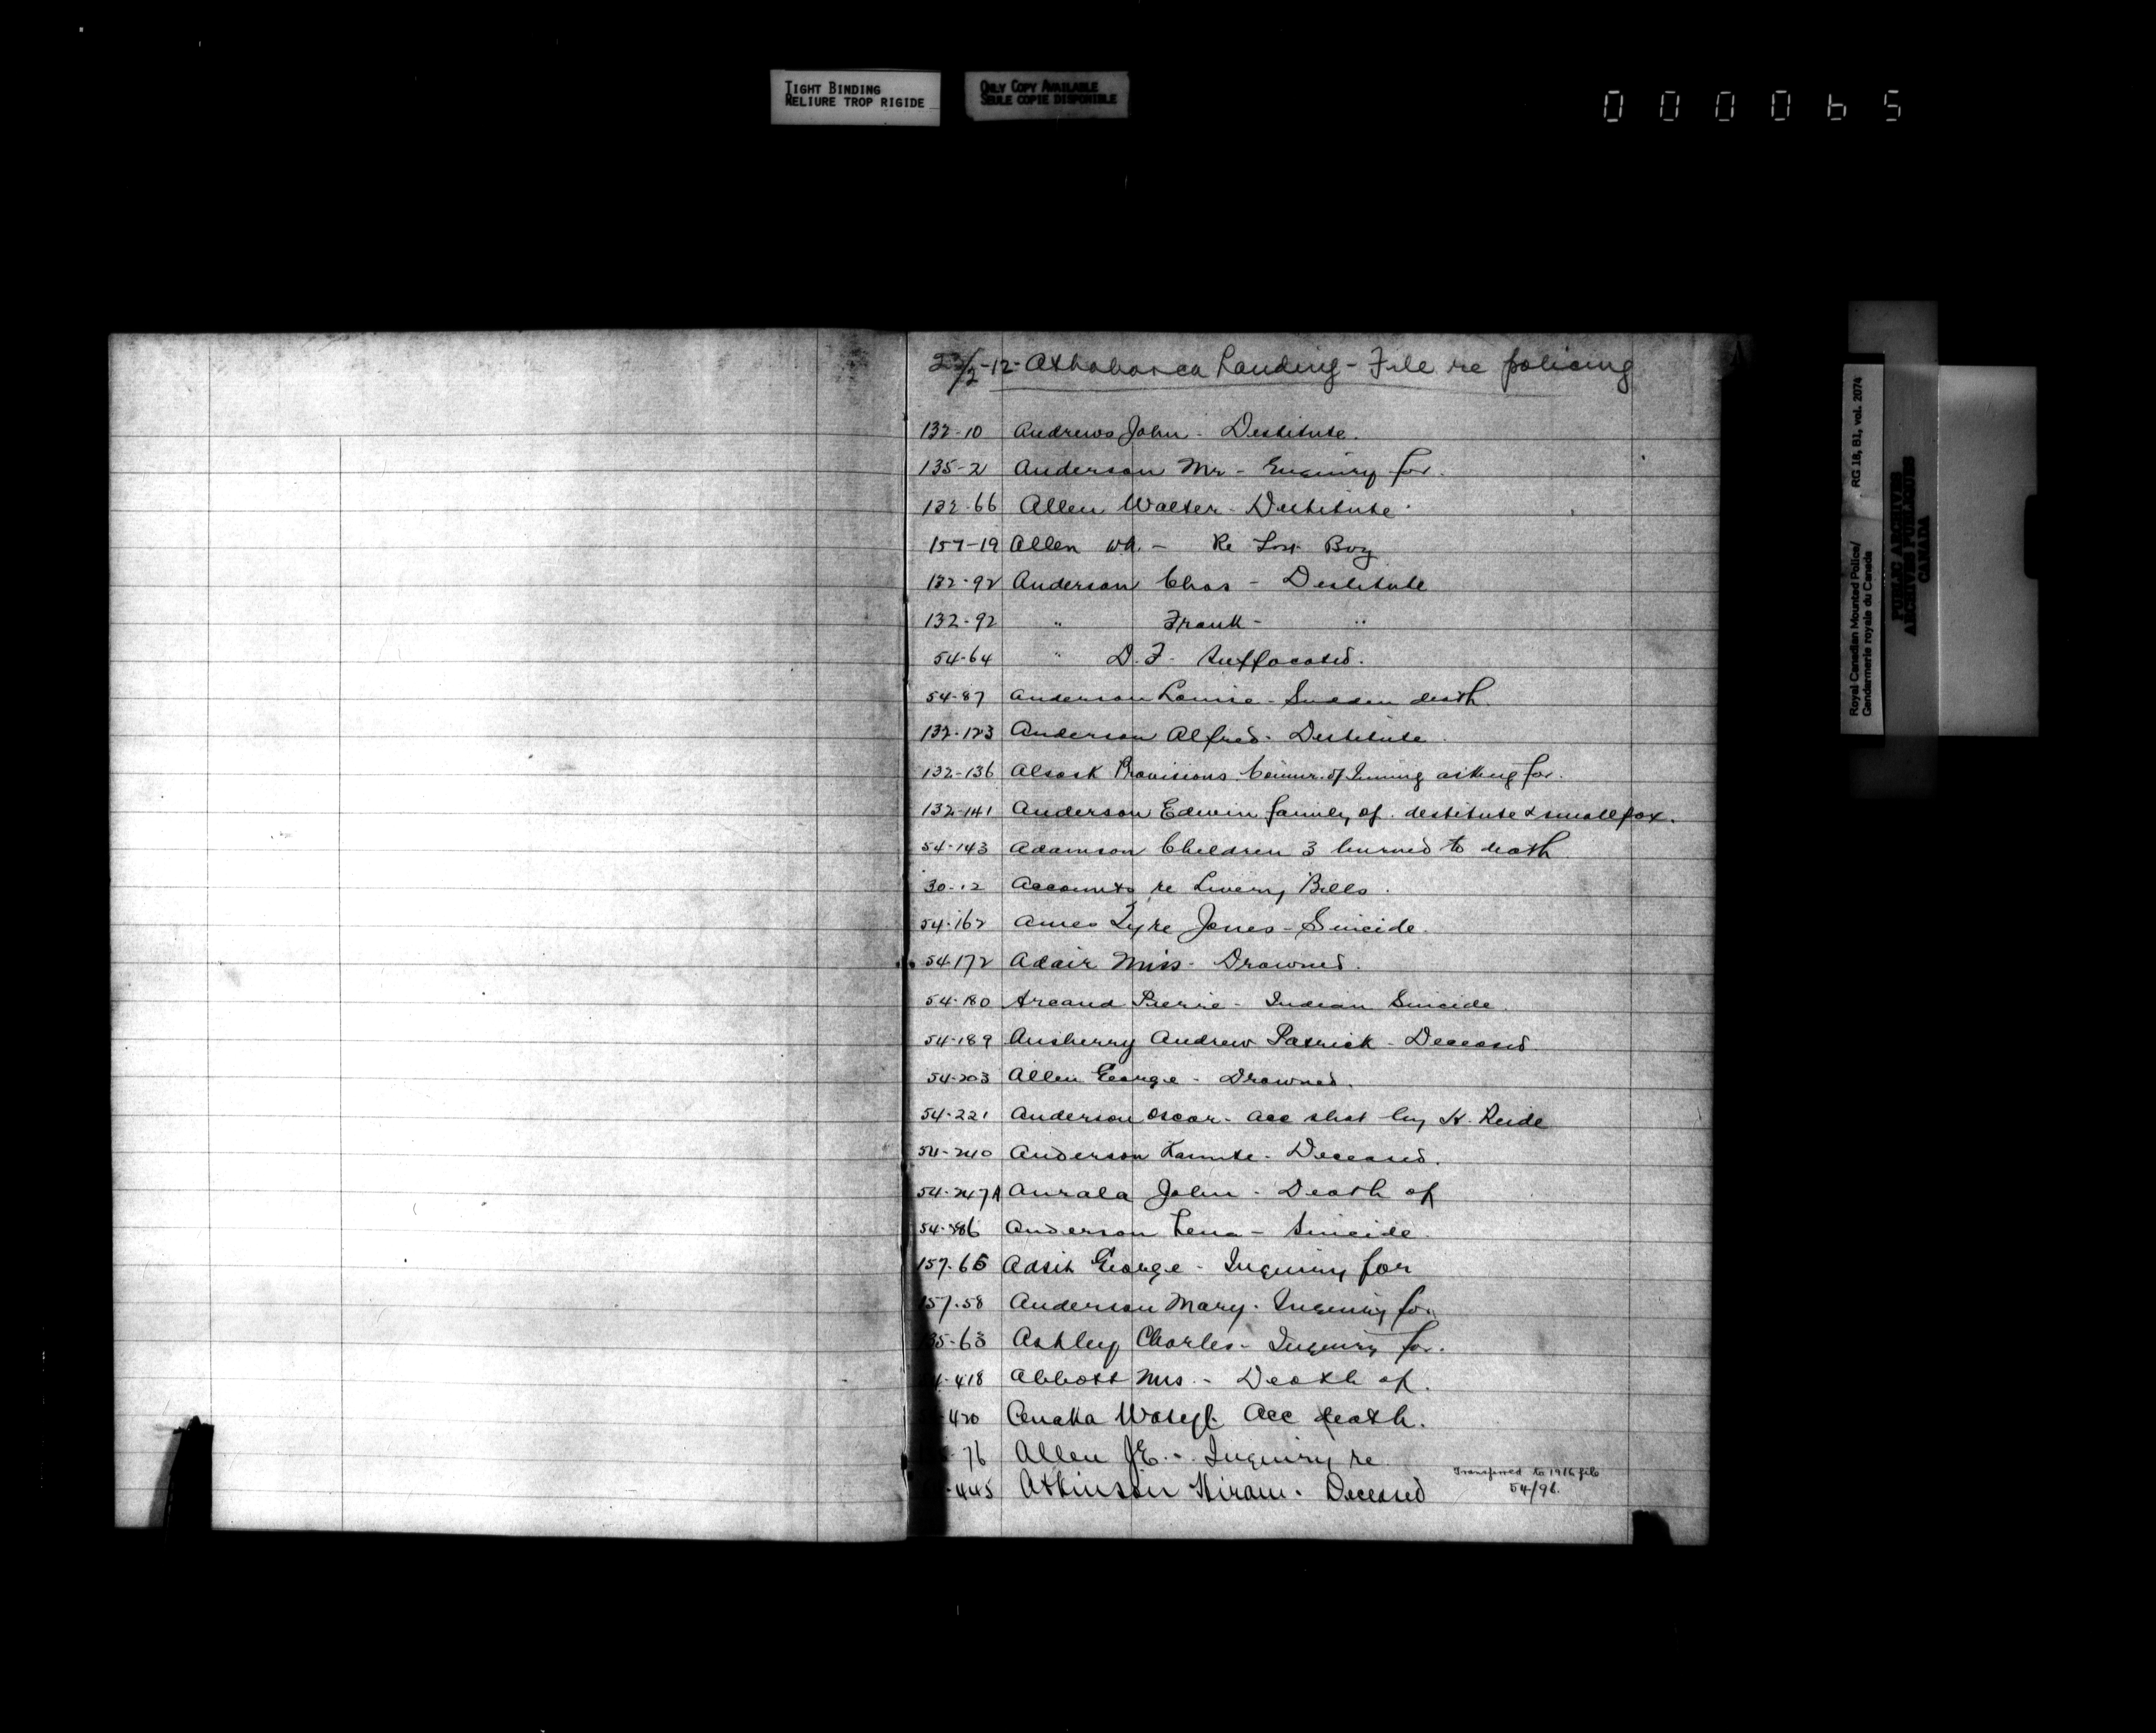 TIGHT BINDING
RELIURE TROP RIGIDE
ONLY COPY AVAILABLE
SEULE COPIE DISPONIBLE
000065
-12- Athabasca Landing - File re policing
132-10 Andrews John - Destitute.
135-2 Anderson Mr - Enquiry for.
132-66 Allen Walter - Destitute
157-19 Allen Wh. - Re Lost Boy
132-92 Anderson Chas - Destitute
132-92 " Frank - "
54-64 " D.F. Suffocated.
54-87 Anderson Louise - Sudden death.
132-123 Anderson Alfred - Destitute.
132-136 Alsask Provisions Commr. of asking for.
132-141 Anderson Edwin family of. destitute & smallpox.
54-143 Adamson Children 3 burned to death
30-12 Accounts re Livery Bills.
54-162 Ames Jones - Suicide.
54-172 Adair Miss - Drowned.
54-180 Arcand Pierre - Indian Suicide.
54-189 Ansberry Andrew Patrick - Deceased.
54-203 Allen George - Drowned.
54-221 Anderson Oscar - Acc shot by H.
54-240 Anderson - Deceased.
54-247A Anrala John - Death of
54- Anderson Lena - Suicide.
157-65 Adsit George - Inquiry for
157-58 Anderson Mary - Inquiry for
35-63 Ashley Charles - Inquiry for.
-418 Abbott Mrs. - Death of.
-420 Acc death.
-76 Allen J.E. - Inquiry re
-445 Atkinson Hiram. Deceased
Transferred to 1916 file
54/98.
Royal Canadian Mounted Police/
Gendarmerie royale du Canada
RG 18, B1, vol. 2074
PUBLIC ARCHIVES
ARCHIVES PUBLIQUES
CANADA